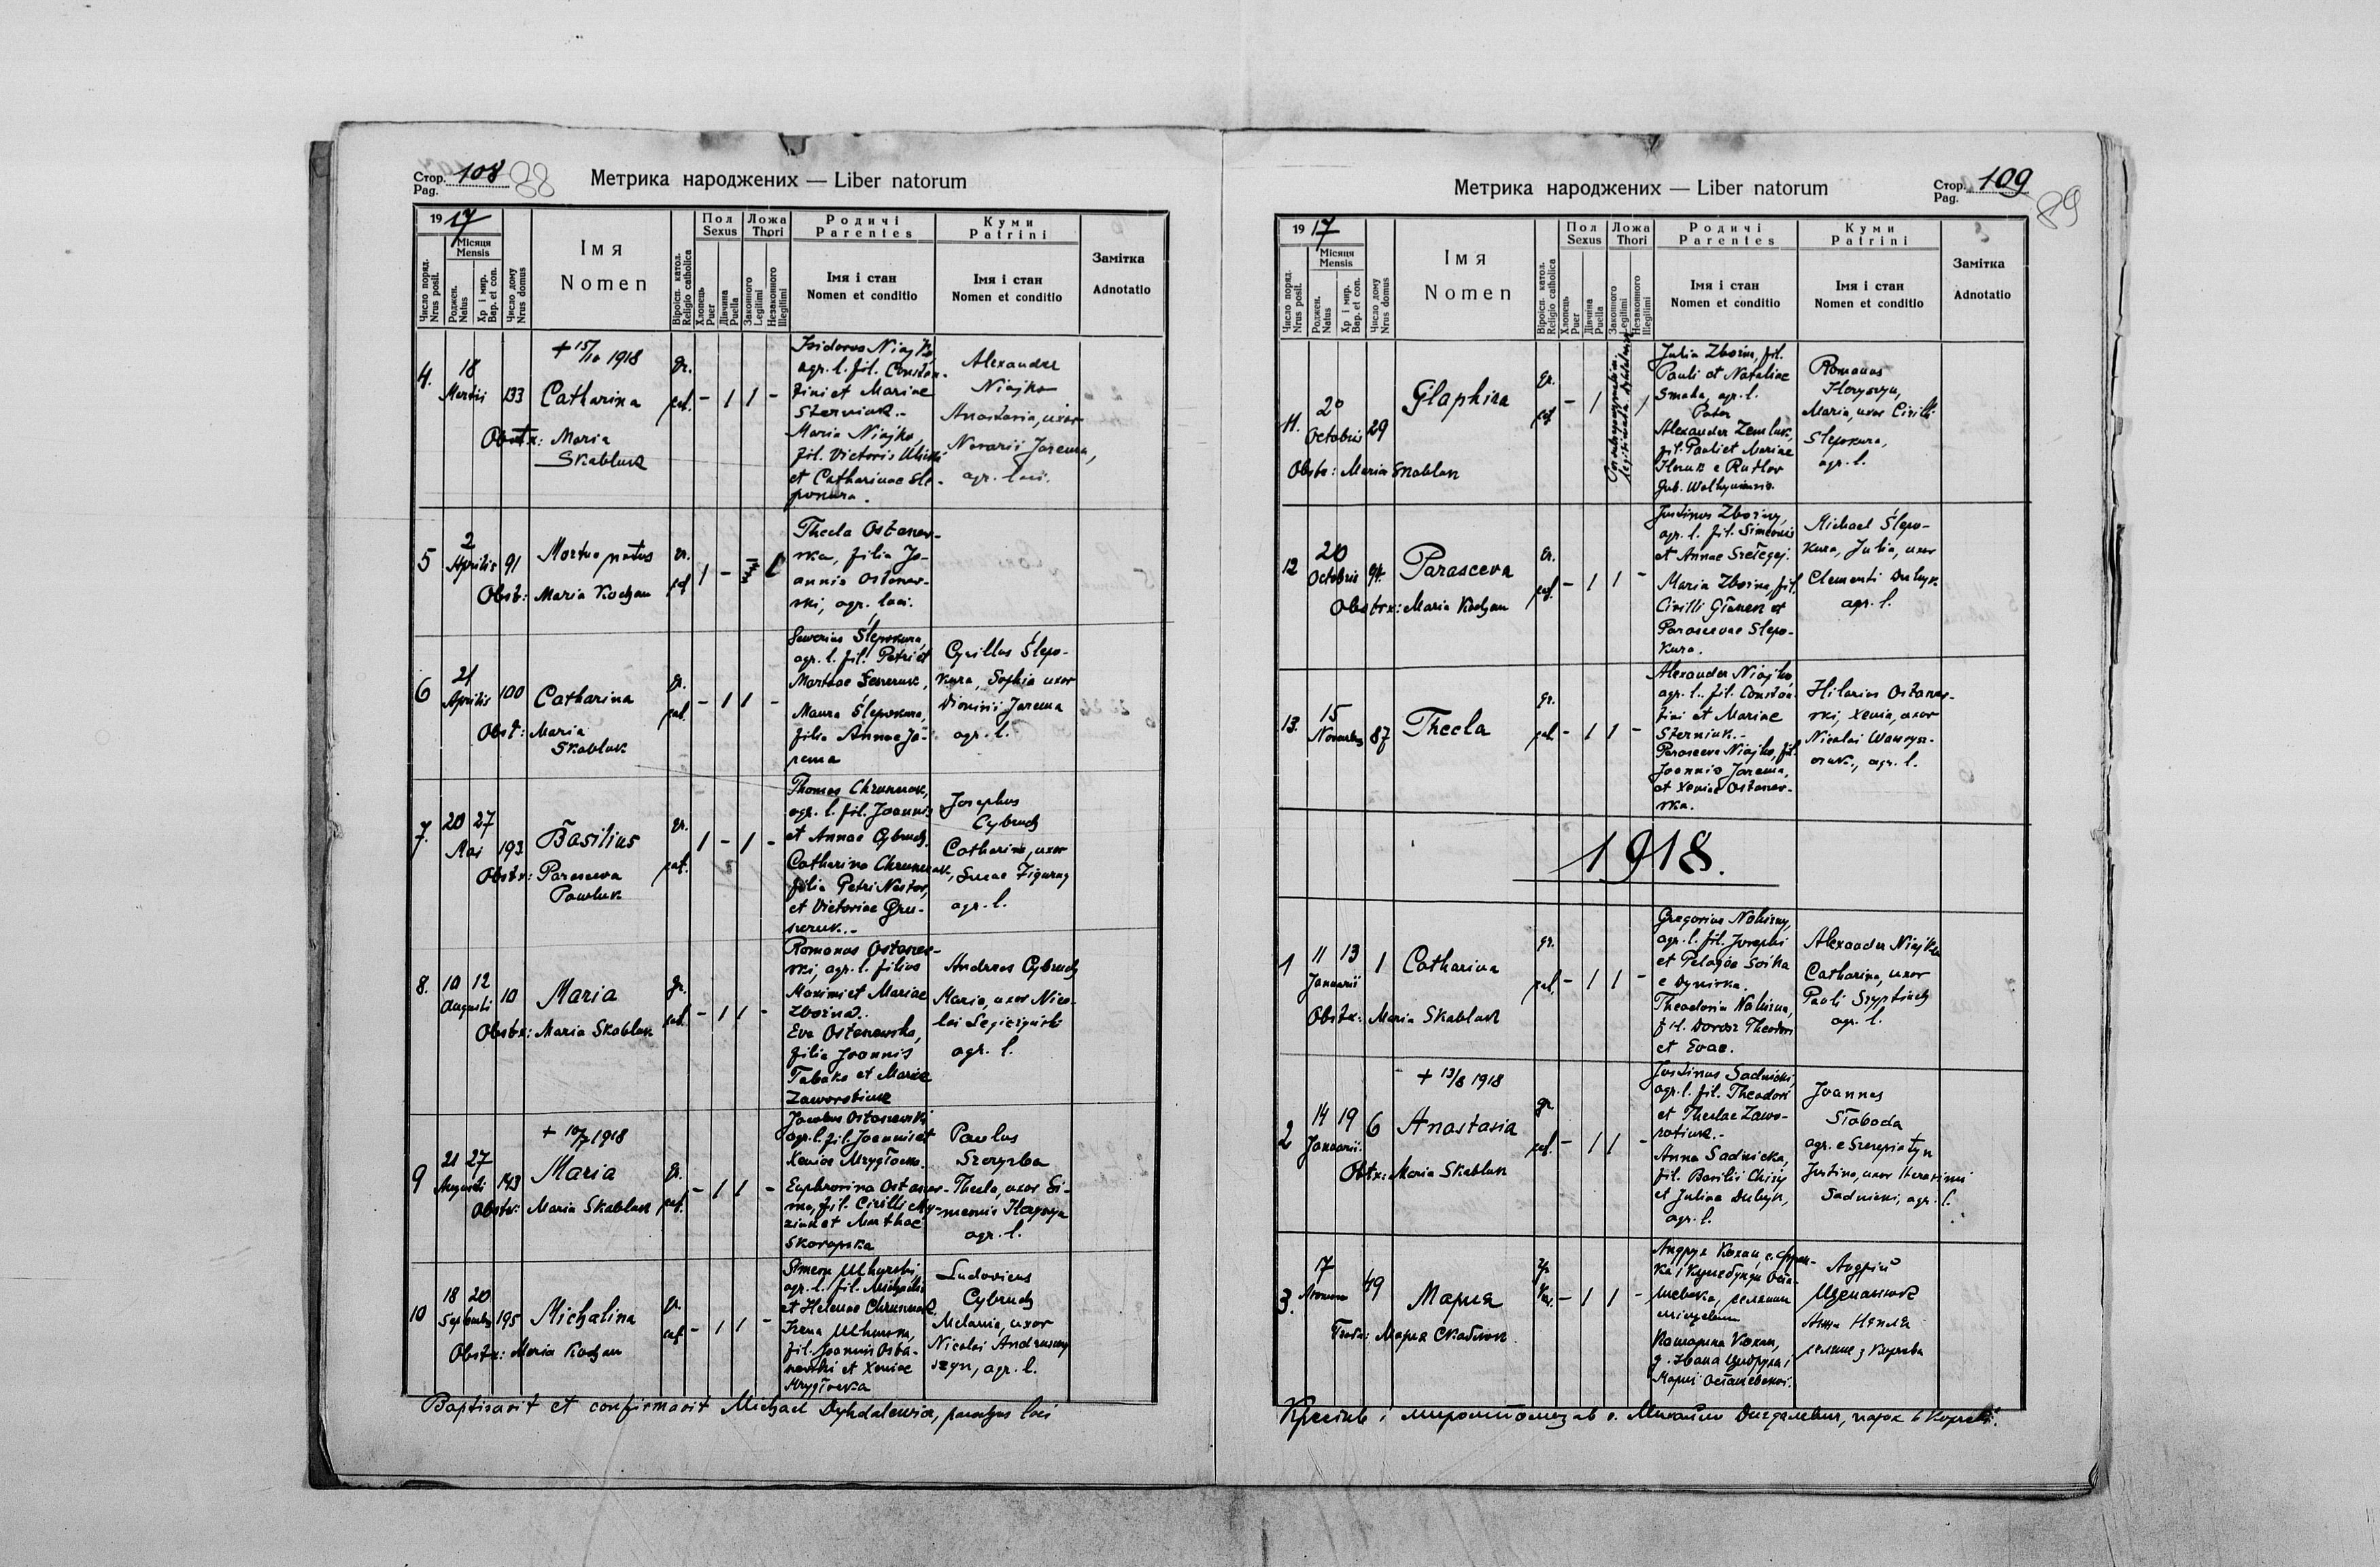 Стор. 108 88
Pag.
Метрика народжених — Liber natorum
19 17
Число поряд.
Nrus posit.
Місяця
Mensis
Роджен.
Natus
Хр і мир.
Bap. et con.
Число дому
Nrus domus
Імя
Nomen
Віроісп. катол.
Religio catholica
Пол
Sexus
Хлопець
Puer
Дівчина
Puella
Ложа
Thori
Законного
Legitimi
Незаконного
Illegitimi
Родичі
Parentes
Імя і стан
Nomen et conditio
Куми
Patrini
Імя і стан
Nomen et conditio
Замітка
Adnotatio
4. 18 Martii 133
+ 15/10 1918
Catharina
Obstx: Maria
Skabluk
gr. cat. - 1 1 -
Isidorus Niajko,
agr. l. fil. Constan-
tini et Mariae
Sterniuk.-
Maria Niajko,
fil. Victoris
et Catharinae Sle-
pokura.
Alexander
Niajko
Anastasia, uxor
Jarema,
agr. loci.
5 2 Aprilis 91
Mortuo natus
Obst: Maria Kochan
gr. cat 1 -
Thecla Ostanew-
ska, filia Jo-
annis Ostanew-
ski, agr. loci.
6 21 Aprilis 100
Catharina
Obst: Maria
Skabluk
gr. cat. - 1 1 -
Severius Ślepokura,
agr. l. fil. Petri et
Marthae
Maura Ślepokura,
filia Annae Ja-
rema
Cyrillus Ślepo-
kura, Sophia uxor
Dionisii Jarema
agr. l.
7. 20 27 Mai 193
Basilius
Obstx: Parasceva
Pawluk
gr. cat. 1 - 1 -
Thomas Chrununak,
agr. l. fil. Joannis
et Annae Cybruch.
Catharina Chrununak,
filia Petri Nestor,
et Victoriae Gru-
szczuk.-
Josephus
Cybruch
Catharina, uxor
agr. l.
8. 10 12 Augusti 10
Maria
Obstx: Maria Skabluk
gr. cat. - 1 1 -
Romanus Ostanew-
ski, agr. l. filius
Maximi et Mariae
Zboina.
Eva Ostanewska,
filia Joannis
Tabaka et Mariae
Zaworotiuk
Andreas Cybruch
Maria, uxor Nico-
lai
agr. l.
9 21 27 Augusti 143
+ 10/7 1918
Maria
Obstx: Maria Skabluk
gr. cat. - 1 1 -
Jacobus Ostanewski
agr. l. fil. Joannis et
Xeniae Mrygłocka.
Euphrosina Ostanew-
ska, fil. Cirilli My-
ziuk et Marthae
Skoropska
Paulus
Szczyrba
Thecla, uxor Si-
meonis Horyszyn
agr. l.
10 18 20 Septembris 195
Michalina
Obstx: Maria Kochan
gr. cat - 1 1 -
Simeon Uhurski,
agr. l. fil. Michaelis
et Helenae Chrununak.
Irena Uhurska,
fil. Joannis Osta-
newski et Xeniae
Mrygłocka
Ludovicus
Cybruch
Melania, uxor
Nicolai Andrusczy-
szyn, agr. l.
Baptisavit et confirmavit Michael Dyhdalewicz, parochus loci
Метрика народжених — Liber natorum
Стор. 109 89
Pag.
19 17
Число поряд.
Nrus posit.
Місяця
Mensis
Роджен.
Natus
Хр і мир.
Bap. et con.
Число дому
Nrus domus
Імя
Nomen
Віроісп. катол.
Religio catholica
Пол
Sexus
Хлопець
Puer
Дівчина
Puella
Ложа
Thori
Законного
Legitimi
Незаконного
Illegitimi
Родичі
Parentes
Імя і стан
Nomen et conditio
Куми
Patrini
Імя і стан
Nomen et conditio
Замітка
Adnotatio
11. 20 Octobris 29
Glaphira
Obstx: Maria Skabluk
gr. cat - 1 /
Julia Zboina, fil.
Pauli et Nataliae
Smaha, agr. l.
Pater
Alexander Zemluk,
fil. Pauli et Mariae
Gub. Wolhyniensis.
Romanus
Horyszyn,
Maria, uxor Cirilli
Slepokura,
agr. l.
12 20 Octobris 94.
Parasceva
Obstrx: Maria Kochan
gr. cat. - 1 1 -
Justinus Zboiny,
agr. l. fil. Simeonis
et Annae
Maria Zboina, fil.
Cirilli et
Parascevae Slepo-
kura.
Michael Ślepo-
kura, Julia, uxor
Clementi Duhyk.
agr. l.
13. 15 Novembris 87
Thecla
gr. cat - 1 1 -
Alexander Niajko,
agr. l. fil. Constan-
tini et Mariae
Sterniuk.-
Parasceva Niajko, fil.
Joannis Jarema,
et Xeniae Ostanew-
ska.
Hilarius Ostanew-
ski, Xenia, uxor
Nicolai Wawrysz-
czuk, agr. l.
1918.
1 11 13 Januarii 1
Catharina
Obstx: Maria Skabluk
gr. cat. - 1 1 -
Gregorius Nahirny,
agr. l. fil. Josephi
et Pelagiae Soika
e Dyniska.
Theodosia Nahirna,
fil. Dorosz Theodori
et Evae.
Alexander Niajko
Catharina, uxor
Pauli Szyptiuch
agr. l.
2 14 19 Januarii. 6
+ 13/8 1918
Anastasia
Obstx: Maria Skabluk
gr. cat. - 1 1 -
Justinus Sadnicki,
agr. l. fil. Theodori
et Theclae Zawo-
rotiuk.-
Anna Sadnicka,
fil. Basilii Chizy
et Juliae Duhyk,
agr. l.
Joannes
Słoboda
agr. e Szczepiatyn
Justina, uxor Herasimi
Sadnicki, agr. l.
3. 17 49
Мария
Мария Скаблюк
гр. кат. - 1 1 -
Андрух Кохан, с. Фран-
ка і Кунегунди Оста-
шевска, селянин
місцевий
Катарина Кохан,
д. Івана Цибруха і
Марії Осташевскої.
Андрій
Анна
селяне з Корчева
Крестив і миропомазав о. Михайло Дигдалевич, парох в Корчеві.